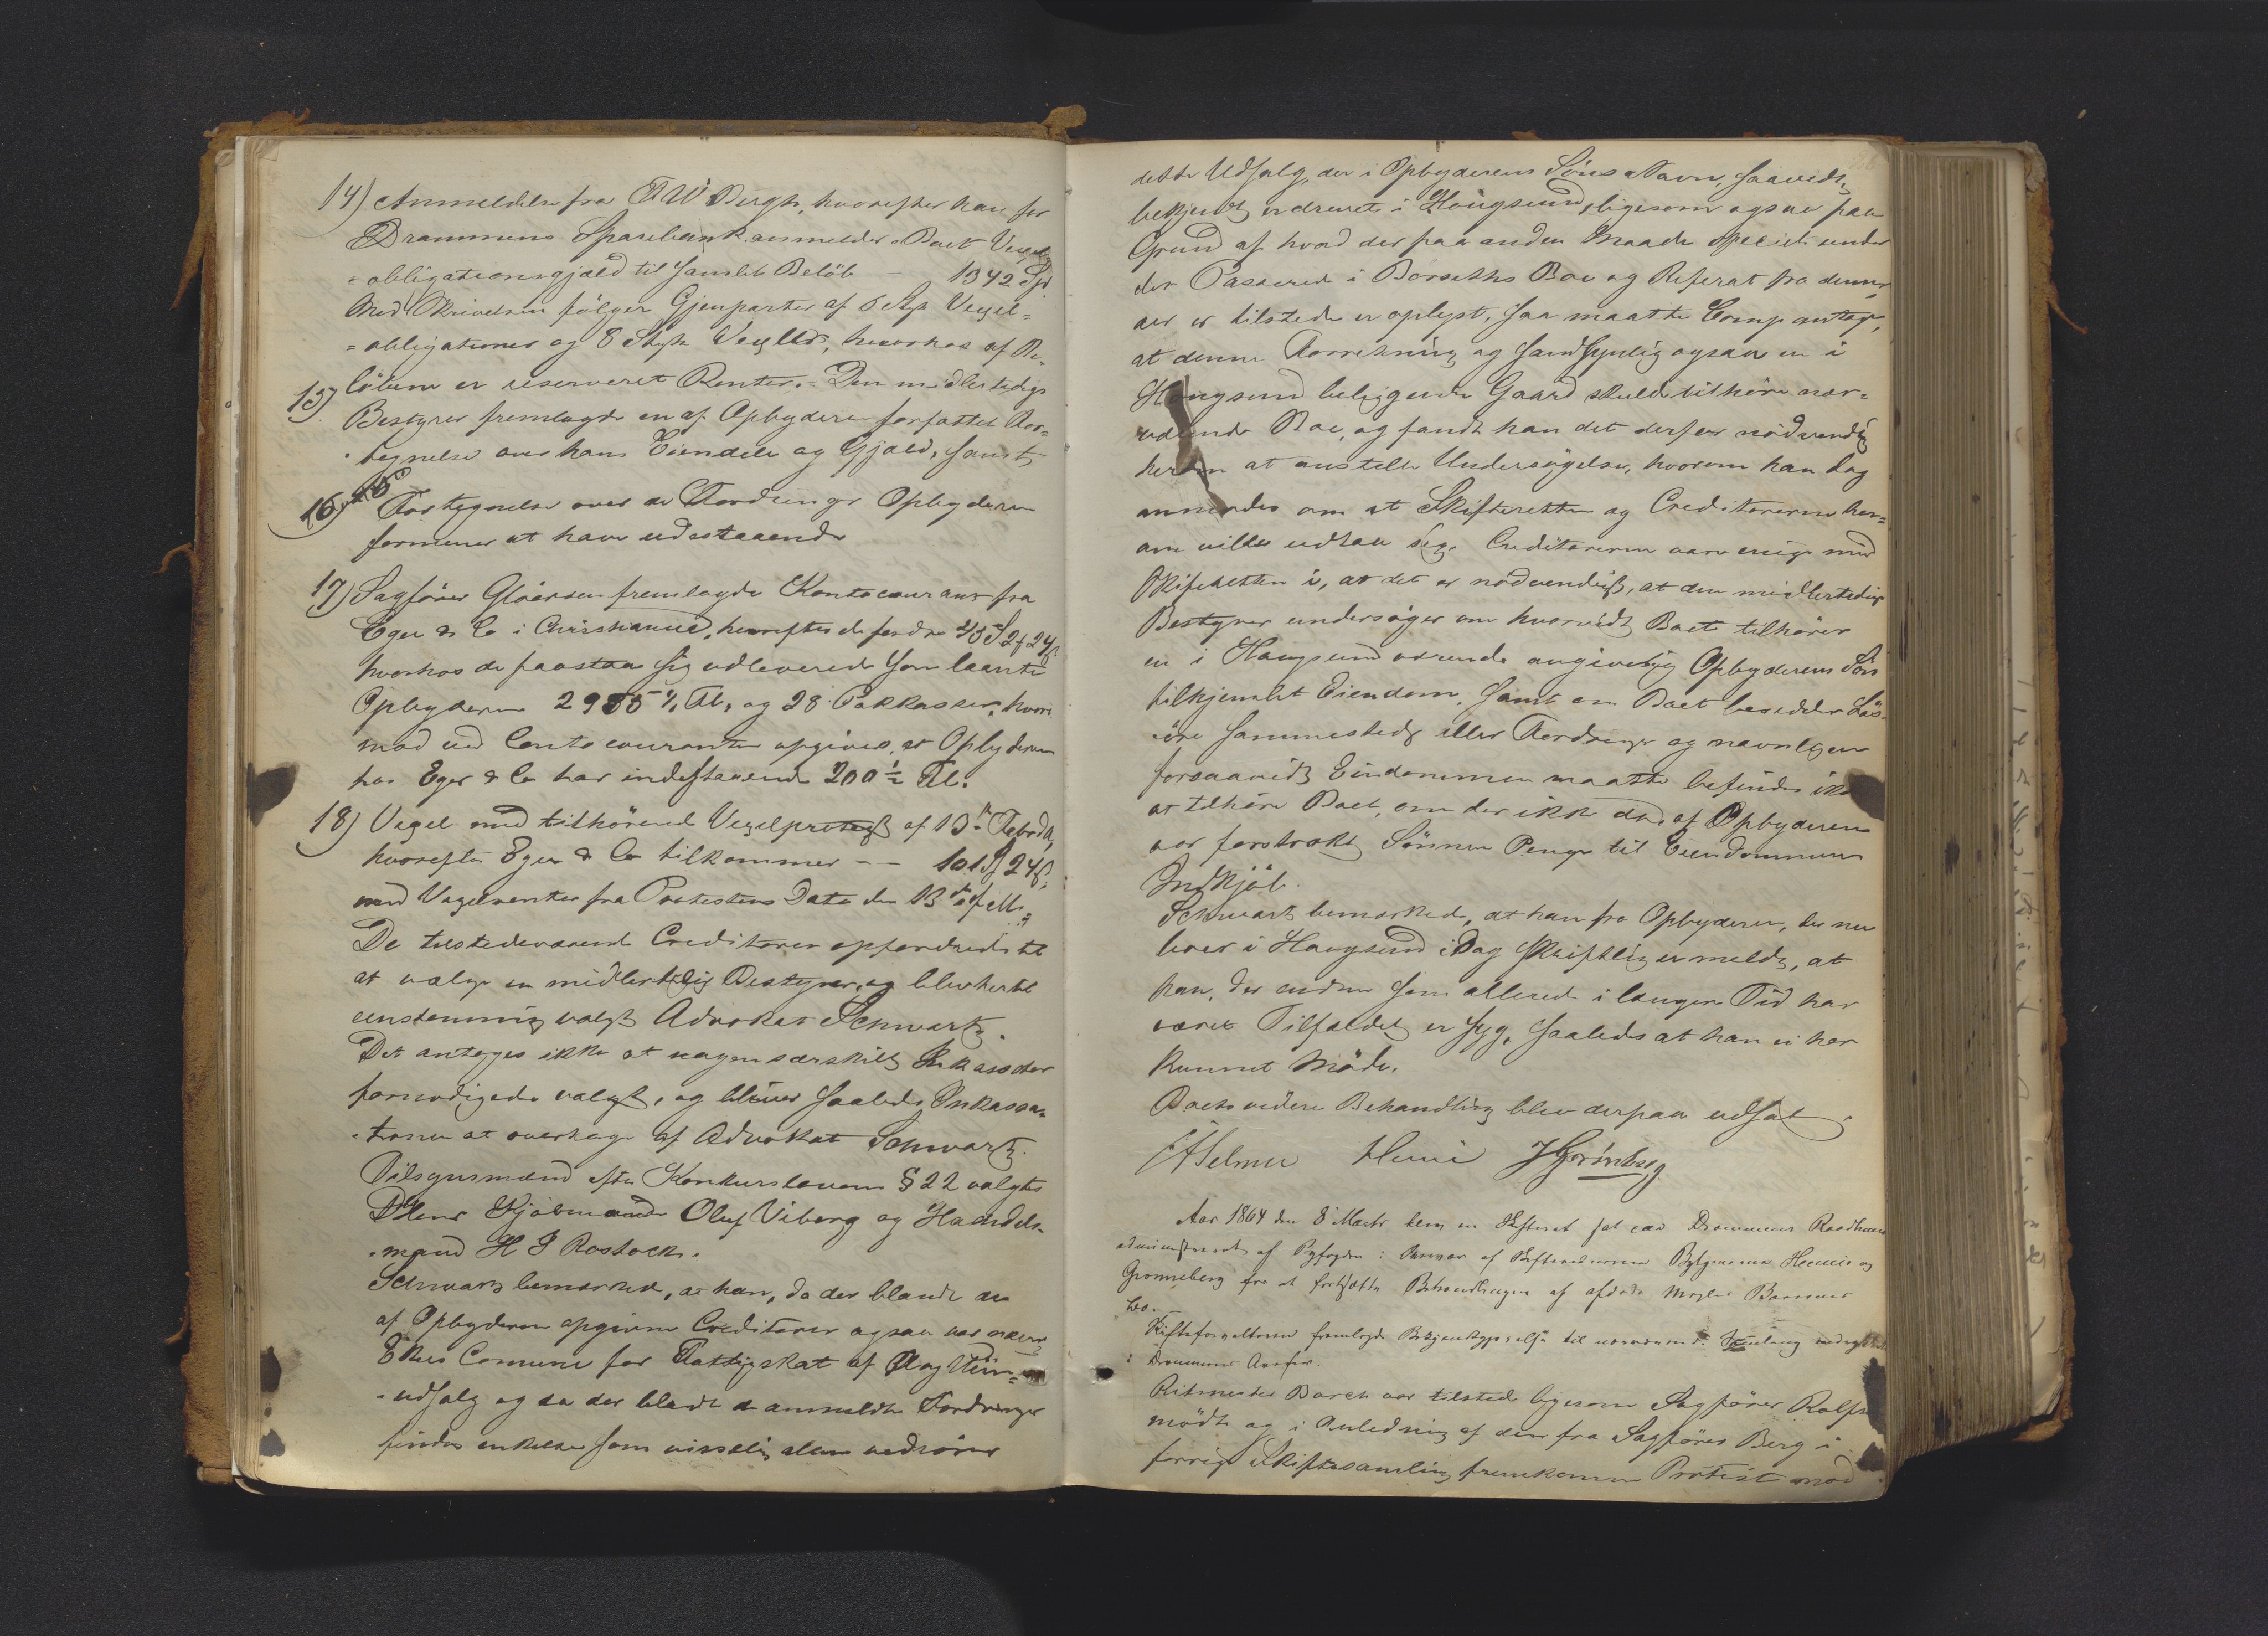 14) Anmeldelse fra F W Bergh, hvorefter han for
Drammens Sparebank anmelder Boet Vexel
=obligationsgjæld til samlet Beløb 1342 Spd
Med Skrivelsen følger Gjenparter af 6 Stk Vexel=
=obligationer og 8 Stk Vexler, hvorhos af Be-
løbene er reserveret Renter. Den midlertidige
15) Bestyrer fremlagde en af Opbyderen forfattet For=
tegnelse over hans Eiendele og Gjæld, samt
16) Fortegnelse over de Fordringer Opbyderen
formener at have udestaaende
17) Sagfører Gløersen fremlagde Kontocourant fra
Eger & Co i Christiania, hvorefter de fordre
hvorhos de paastaa sig udleveret som laante
Opbyderen og 28 Pakkasser, hvori
mod ved Contocouranten opgives, at Opbyderen
hos Eger & Co har indestaaende 200½ Fl.
18) Vexel med tilhørende Vexelprotest af 13de Febr d A,
hvorefter Eger & Co tilkommer -- 101 24 ß,
med Vexelrenter fra Protestens Dato den 13de f M.
De tilstedeværende Creditorer opfordredes til
at vælge en midlertidig Bestyrer, og blev hertil
eenstemmig valgt Advokat Schwartz.
Det antages ikke at nogen særskilt Inkassator
fornødigedes valgt, og bliver saaledes Inkassa=
tionen at overtage af Advokat Schwartz.
Tilsynsmænd efter Konkurslovens § 22 valgtes
DHrr Kjøbmænd Oluf Viborg og Handels=
=mand H J Rostock.
Schwartz bemærkede, at han, da der blandt de
af Opbyderen opgivne Creditorer ogsaa var nævnt
Ekers Comune for Fattigskat af og
=udsalg og da der blandt de anmeldte Fordringer
findes enkelte som visselig alene vedrører
dette Udsalg, der i Opbyderens Søns Navn, saavidt
bekjendt er drevet i Hougsund, ligesom ogsaa paa
Grund af hvad der paa anden Maade specielt under
det Passerede i Borseths Boe og Referat fra denne,
der er tilstede er oplyst, saa maatte Comp antage,
at denne Forretning og sandsynlig ogsaa en i
Hougsund beliggende Gaard skulde tilhøre nær=
værende Boe, og fandt han det derfor nødvendig
herom at anstille Undersøgelse, hvorom han dog
anmodes om at Skifteretten og Creditorerne her=
om vilde udtale sig. Creditorerne vare enige med
Skifteretten i, at det er nødvendigt, at den midlertidige
Bestyrer undersøger om hvorvidt Boet tilhører
en i Hougsund værende angivelig Opbyderens Søn
tilhjemlet Eiendom, samt om Boet besidder Løs=
øre sammesteds eller Fordringer og navnligen
forsaavidt Eiendommen maatte befindes ikke
at tilhøre Boet, om der ikke da af Opbyderen
var forstrakt Sønnen Penge til Eiendommens
Indkjøb.
Schwartz bemærkede, at han fra Opbyderen, der nu
boer i Hougsund i Dag skriftlig er meldt, at
han, der endnu som allerede i længere Tid har
været Tilfældet er syg, saaledes at han ei har
kunnet Møde.
Boets videre Behandling blev derpaa udsat.
Selmer J Grønneberg
Aar 1864 den 8 Marts blev en Skifteret sat paa Drammens Raadhuus
administreret af Byfogden i Nærvær af Skifteretsvidnerne og
Grønneberg for at fortsætte Behandlingen af afdøde Mægler
Bo.
Skifteforvalteren fremlagde Bekjendtgjørelse til nærværende Samling indrykket
i Drammens Avis
Ritmester Borch var tilstede ligesom Sagfører Rolfsen
mødte og i Anledning af den fra Sagfører Berg i
forrige Skiftesamling fremkomne Protest mod